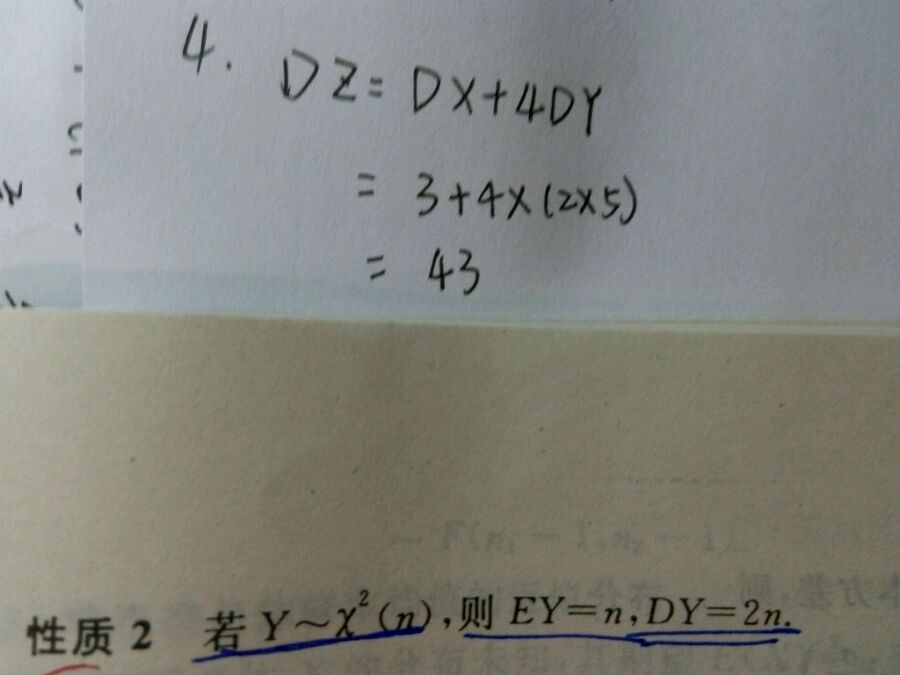 4. DZ = DX+4DY
= 3+4×(2×5)
= 43
性质 2 若 Y~χ²(n),则 EY=n,DY=2n.